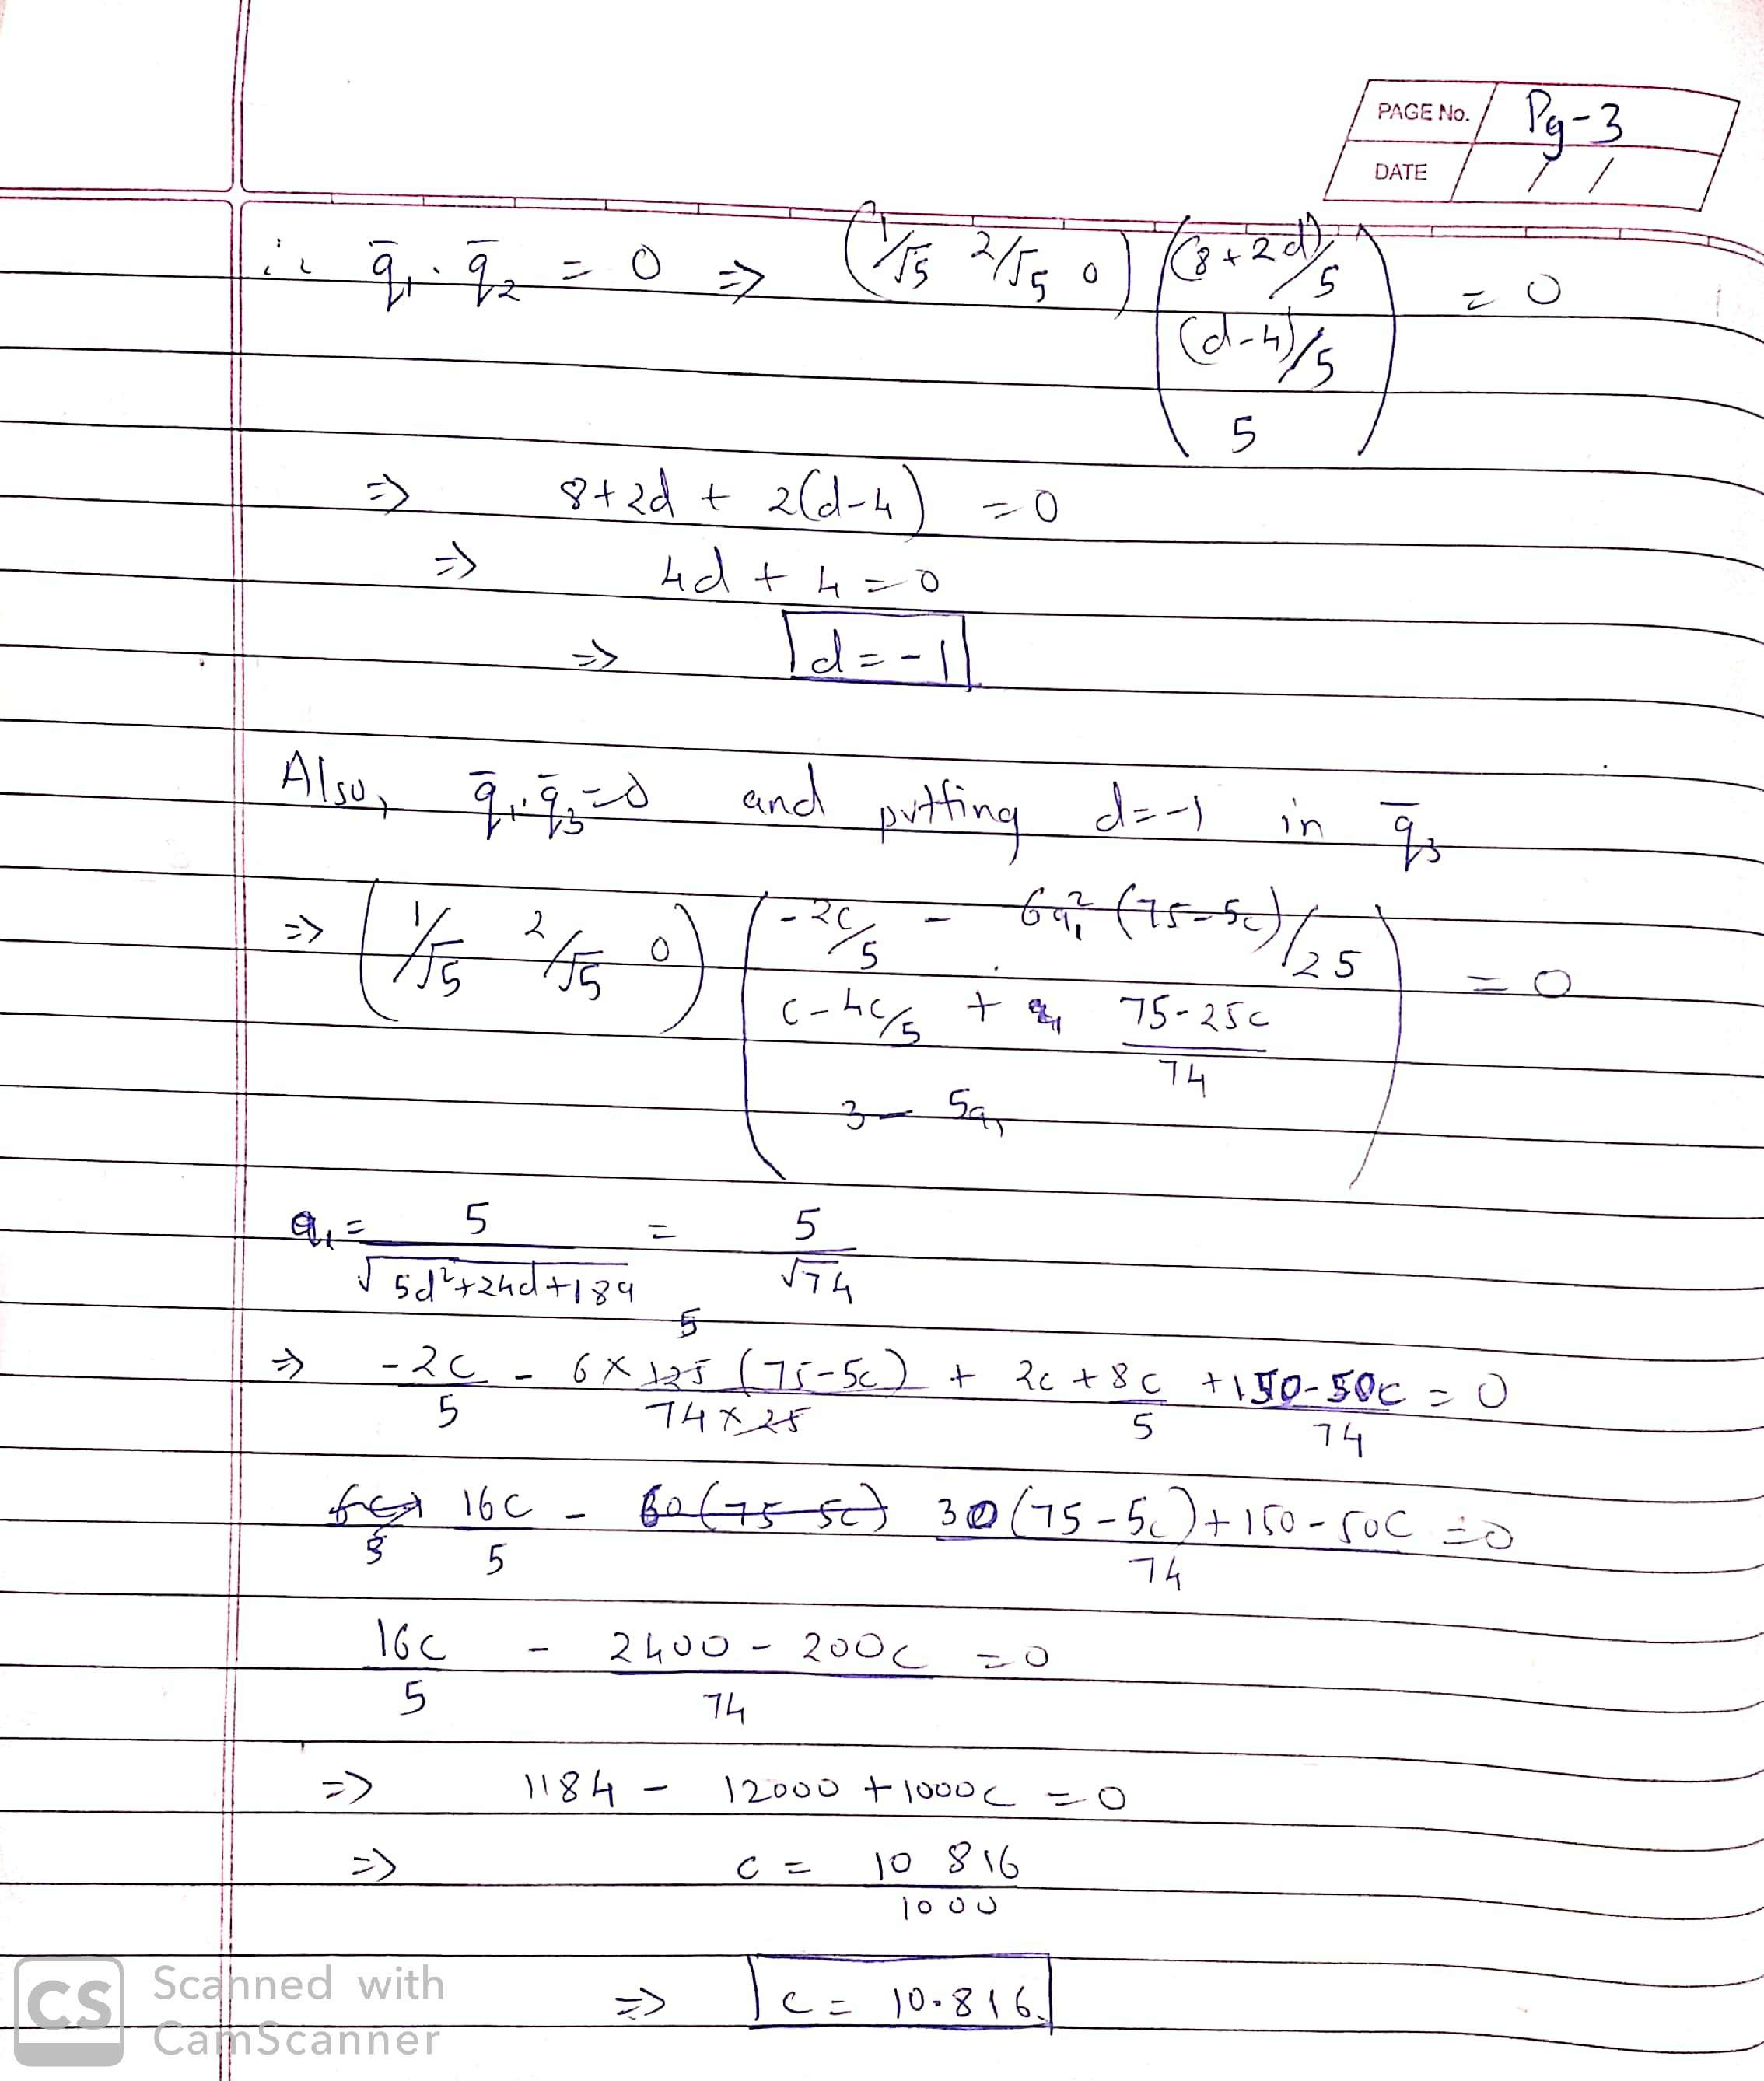 PAGE No. Pg-3
DATE / /
∴ q̄₁ · q̄₂ = 0 ⇒ (1/√5 2/√5 0) ((8+2d)/5
(d-4)/5
5) = 0
⇒ 8+2d + 2(d-4) = 0
⇒ 4d + 4 = 0
⇒ d = -1
Also, q̄₁·q̄₃=0 and putting d=-1 in q̄₃
⇒ (1/√5 2/√5 0) (-2c/5 - 6q₁² (75-5c)/25
c-4c/5 + 75-25c/74
3 - 5q₁) = 0
q₁ = 5/√5d²+24d+189 = 5/√74
⇒ -2c/5 - 6 × 125 5 (75-5c)/74 × 25 + 2c + 8c/5 + 150-50c/74 = 0
16c/5 - 60(75-5c) 30(75-5c)+150-50c/74 = 0
16c/5 - 2400-200c/74 = 0
⇒ 1184 - 12000 + 1000c = 0
⇒ c = 10816/1000
⇒ c = 10.816
CS Scanned with
CamScanner